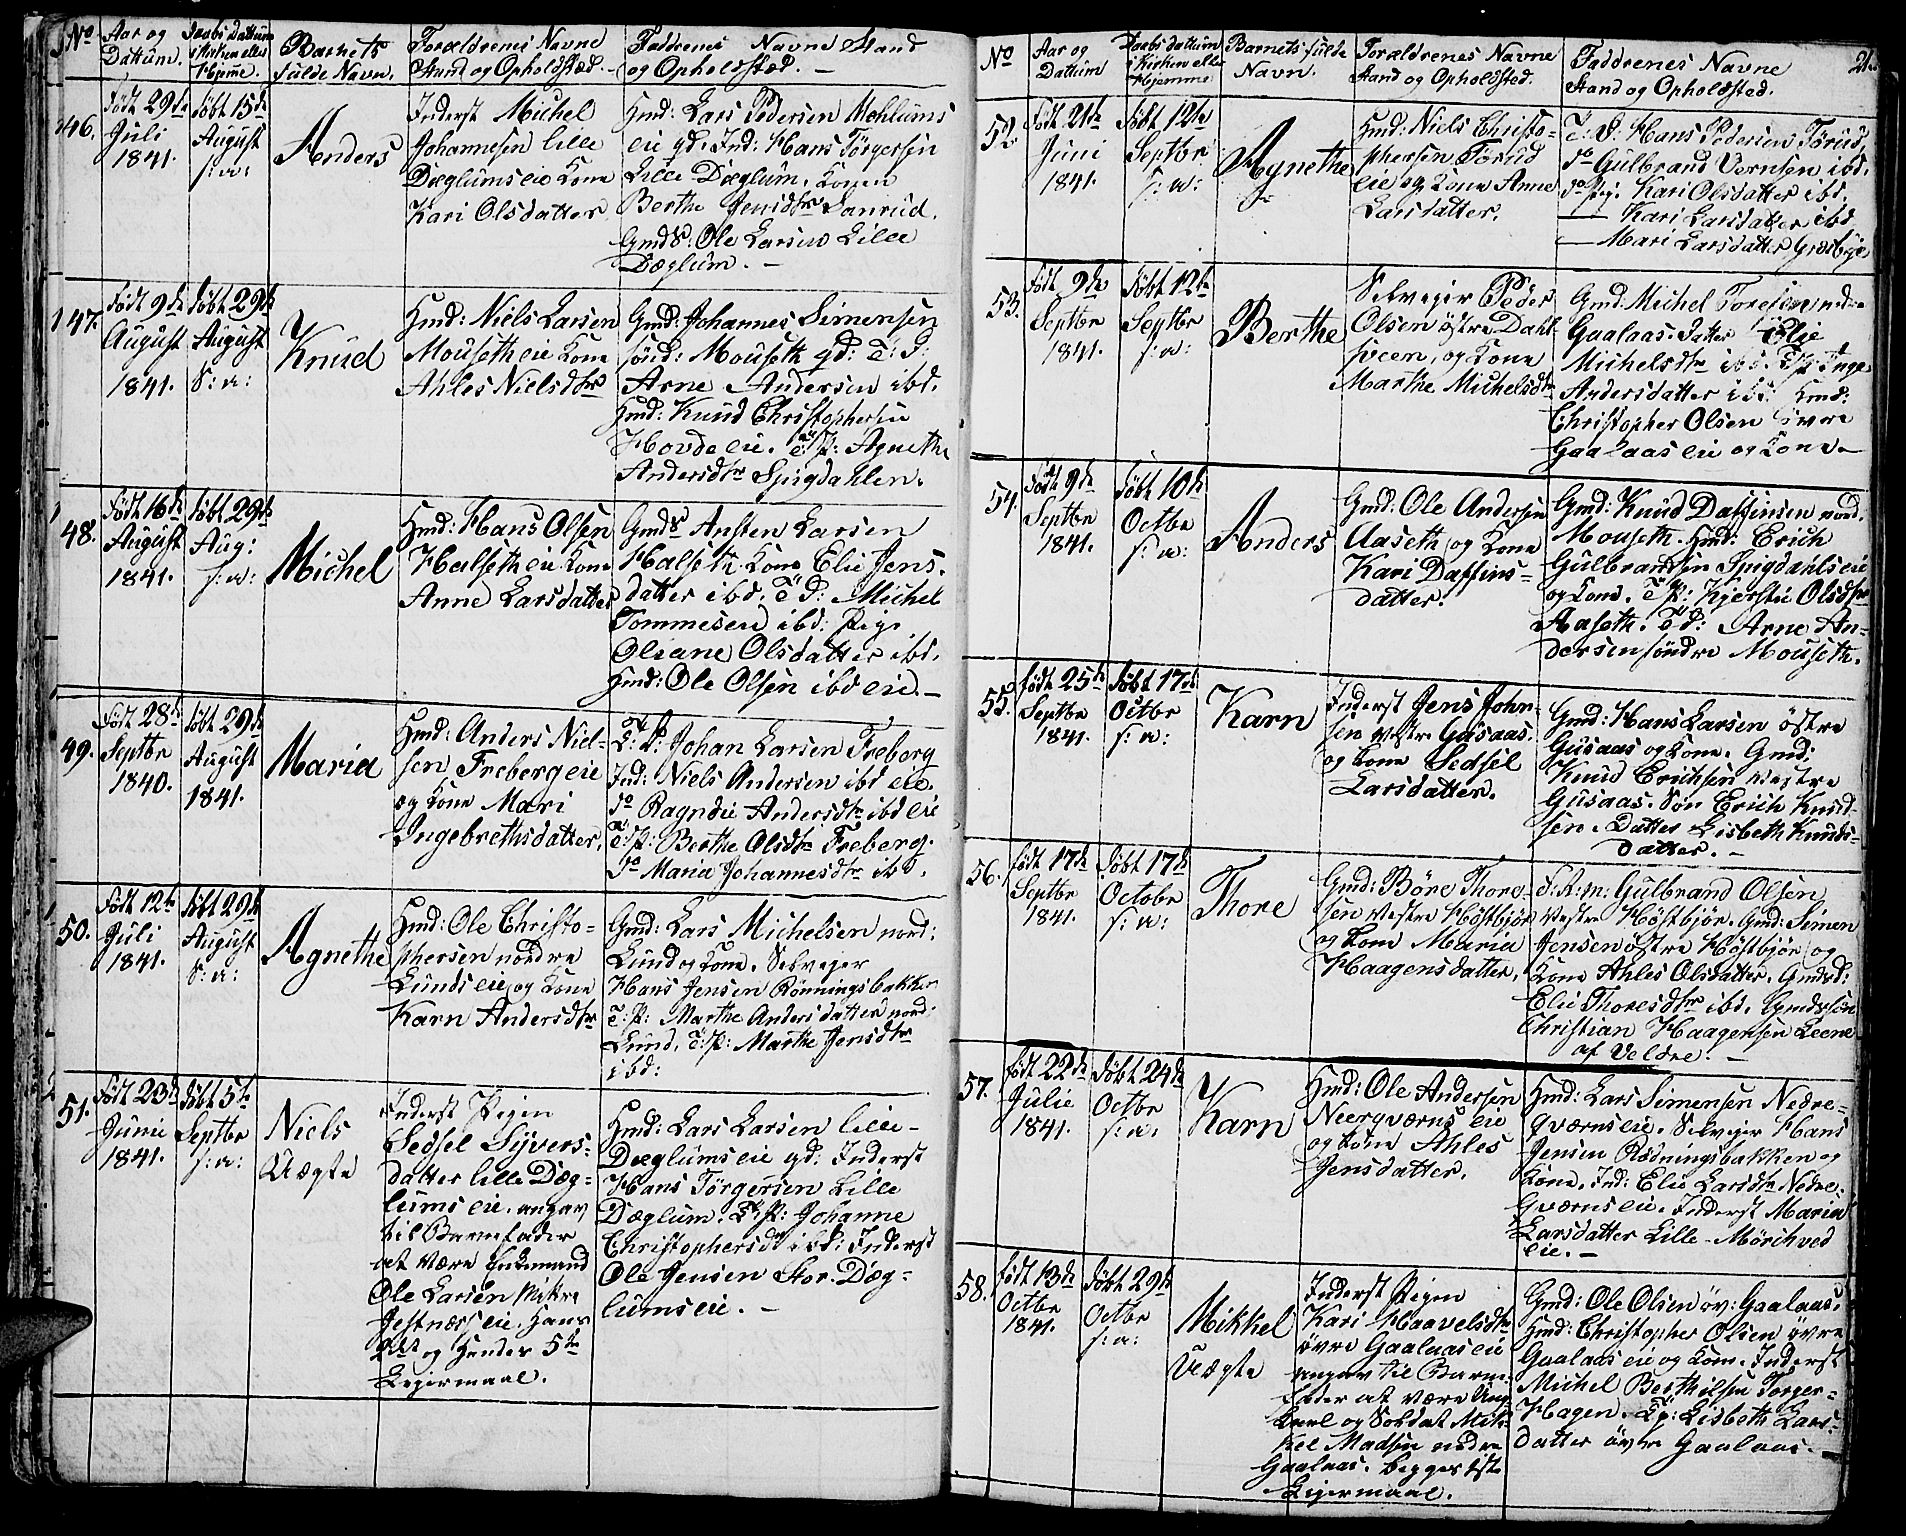 No
Aar og
Dattum.
Daabs Dattum
i Kirken eller
Hjeme.
Barnets
fulde Navn.
Forældrenes Navne
Stand og Opholdsted.
Faddrenes Navne Stand
og Opholdsted. —
46.
Født 29de
Juli
1841.
Døbt 15de
August
s: a:
Anders
Inderst Michel
Johannesen lille
Dæglumseie Kone
Kari Olsdatter
Hmd: Lars Pedersen Mehlums
eie gd: Ind: Hans Törgersen
Lille Dæglum. Konen
Berthe Jensdtr Sanrud.
Gmds: Ole Larsen Lille
Dæglum. —
147.
Født 9de
August
1841.
Døbt 29de
August
s: a:
Knud
Hmd: Niels Larsen
Mouseth eie Kone
Ahles Nielsdtr
Gmd: Johannes Simensen
sönd: Mouseth gd: T: D:
Arne Andersen ibd.
Hmd: Knud Christophersen
Hovde eie. T: P: Agnethe
Andersdtr Spigdahlen.
48.
Født 16de
August
1841.
Døbt 29de
Aug:
s: a:
Michel
Hmd: Hans Olsen
Halseth eie Kone
Anne Larsdatter
Gmds Ansten Larsen
Halseth. Kone Elie Jens-
datter ibd. T: D: Michel
Tommesen ibd: Pige
Oliane Olsdatter ibd.
Hmd: Ole Olsen ibd eie. —
49.
Født 28de
Septbr
1840.
Døbt 29de
August
1841.
Maria
Hmd: Anders Niel-
sen Freberg eie
og Kone Mari
Ingebrethsdatter.
T: D: Johan Larsen Freberg
Ind: Niels Andersen ibd eie.
do Ragndie Andersdtr ibd eie
T: P: Berthe Olsdtr Freberg.
do Maria Johannesdtr ibd.
50.
Født 12te
Juli
1841.
Døbt 29de
August
s: a:
Agnethe
Hmd: Ole Christo-
phersen nordre
Lunds eie, og Kone
Karn Andersdtr
Gmd: Lars Michelsen nord:
Lund og Kone. Selveger
Hans Jensen Rönningsbakken
T: P: Marthe Andersdatter nord:
Lund. T: P: Marthe Jensdtr
ibd:
51.
Født 23de
Junii
1841.
Døbt 5te
Septbr
s: a:
Niels
Uægte
Inderst Pigen
Sedsel Syvers-
datter lille Dæg-
lums eie. angav
til Barnefader
at være Enkemand
Ole Larsen Vestre
Jestnæs eie. Hans
2det og Hendes 5te
Leiermaal.
Hmd: Lars Larsen lille-
Dæglums eie gd: Inderst
Hans Törgersen Lille
Dæglum. T: P: Johanne
Christophersdtr ibd: Inderst
Ole Jensen Stor-Dæg-
lums eie. —
No
Aar og
Dattum
Daabs dattum
i Kirken eller
Hjemme
Barnets fulde
Navn.
Forældrenes Navne
Stand og Opholdsted.
Faddrenes Navne
Stand og Opholdsted.
21.
52.
Født 21de
Juni
1841.
Døbt 12te
Septbr
s: a:
Agnethe
Hmd: Niels Christo-
phersen Törud
eie og Kone Anne
Larsdatter.
T: D: Hans Pedersen Törud,
do Gulbrand Verensen ibd.
do Pig. Kari Olsdatter ibd.
— Kari Larsdatter ibd
— Mari Larsdatter
53.
Født 9de
Septbr
1841.
Døbt 12te
Septbr
s: a:
Berthe
Selveger Peder
Olsen östre Dahl-
seen, og Kone
Marthe Michelsdtr
Gmd: Michel Toresen nedre
Gaalaas. Datter Elie
Michelsdtr ibd. T: P: Inge
Andersdatter ibd: Hmd:
Christopher Olsen övre
Gaalaas eie og Kone. —
54.
Født 9de
Septbr
1841.
Døbt 10de
Octbr
s: a:
Anders
Gmd: Ole Andersen
Aaseth, og Kone
Kari Daffins-
datter.
Gmd: Knud Daffinsen nord.
Mouseth. Hmd: Erich
Gulbrandsen Spigdahls eie
og Kone. T: P: Kjerstie Olsdtr
Aaseth. T: D: Arne An-
dersen söndre Mouseth.
55.
Født 25de
Septbr
1841.
Døbt 17de
Octbr
s: a:
Karn
Inderst Jens John-
sen vestre Gusaas.
og Kone Sedsel
Larsdatter.
Gmd: Hans Larsen östre
Gusaas og Kone. Gmd:
Knud Erichsen vestre
Gusaas. Søn Erich Knud-
sen. Datter Lisbeth Knuds-
datter. —
56.
Født 17de
Septbr
1841.
Døbt 17de
Octobr
s: a:
Thore
Gmd: Böre Thore-
sen vestre Höstbjör
og Kone Maria
Haagensdatter.
F: K: m: Gulbrand Olsen
vestre Höstbjör. Gmd: Simen
Jensen östre Höstbjör og
Kone Ahles Olsdatter. Gmds d:
Elie Thoresdtr ibd. Gmds sön
Christian Haagensen Leene
af Veldre. —
57.
Født 22de
Julie
1841.
Døbt 24de
Octbr
s: a:
Karn
Hmd: Ole Andersen
Neerqværns eie
og Kone Ahles
Jensdatter.
Hmd: Lars Simensen Nedre-
qværns eie. Selveger Hans
Jensen Rödningsbakken og
Kone. Ind: Elie Larsdtr Nedre-
qværns eie. Inderst Maria
Larsdatter Lille-Mörchved
eie. —
58.
Født 13de
Octbr
1841.
Døbt 29de
Octbr
s: a:
Mikkel
Uægte
Inderst Pigen
Kari Haavelsdtr
övre Gaalaas eie
angav til Barne-
fader at være Ung
karl og Soldat Mik-
kel Madsen nedre
Gaalaas. begges 1ste
Leiermaal.
Gmd: Ole Olsen öv: Gaalaas.
Hmd: Christopher Olsen övre
Gaalaas eie og Kone. Inderst
Michel Berthilsen Torger-
Hagen. T: p: Lisbeth Lars-
datter övre Gaalaas. —